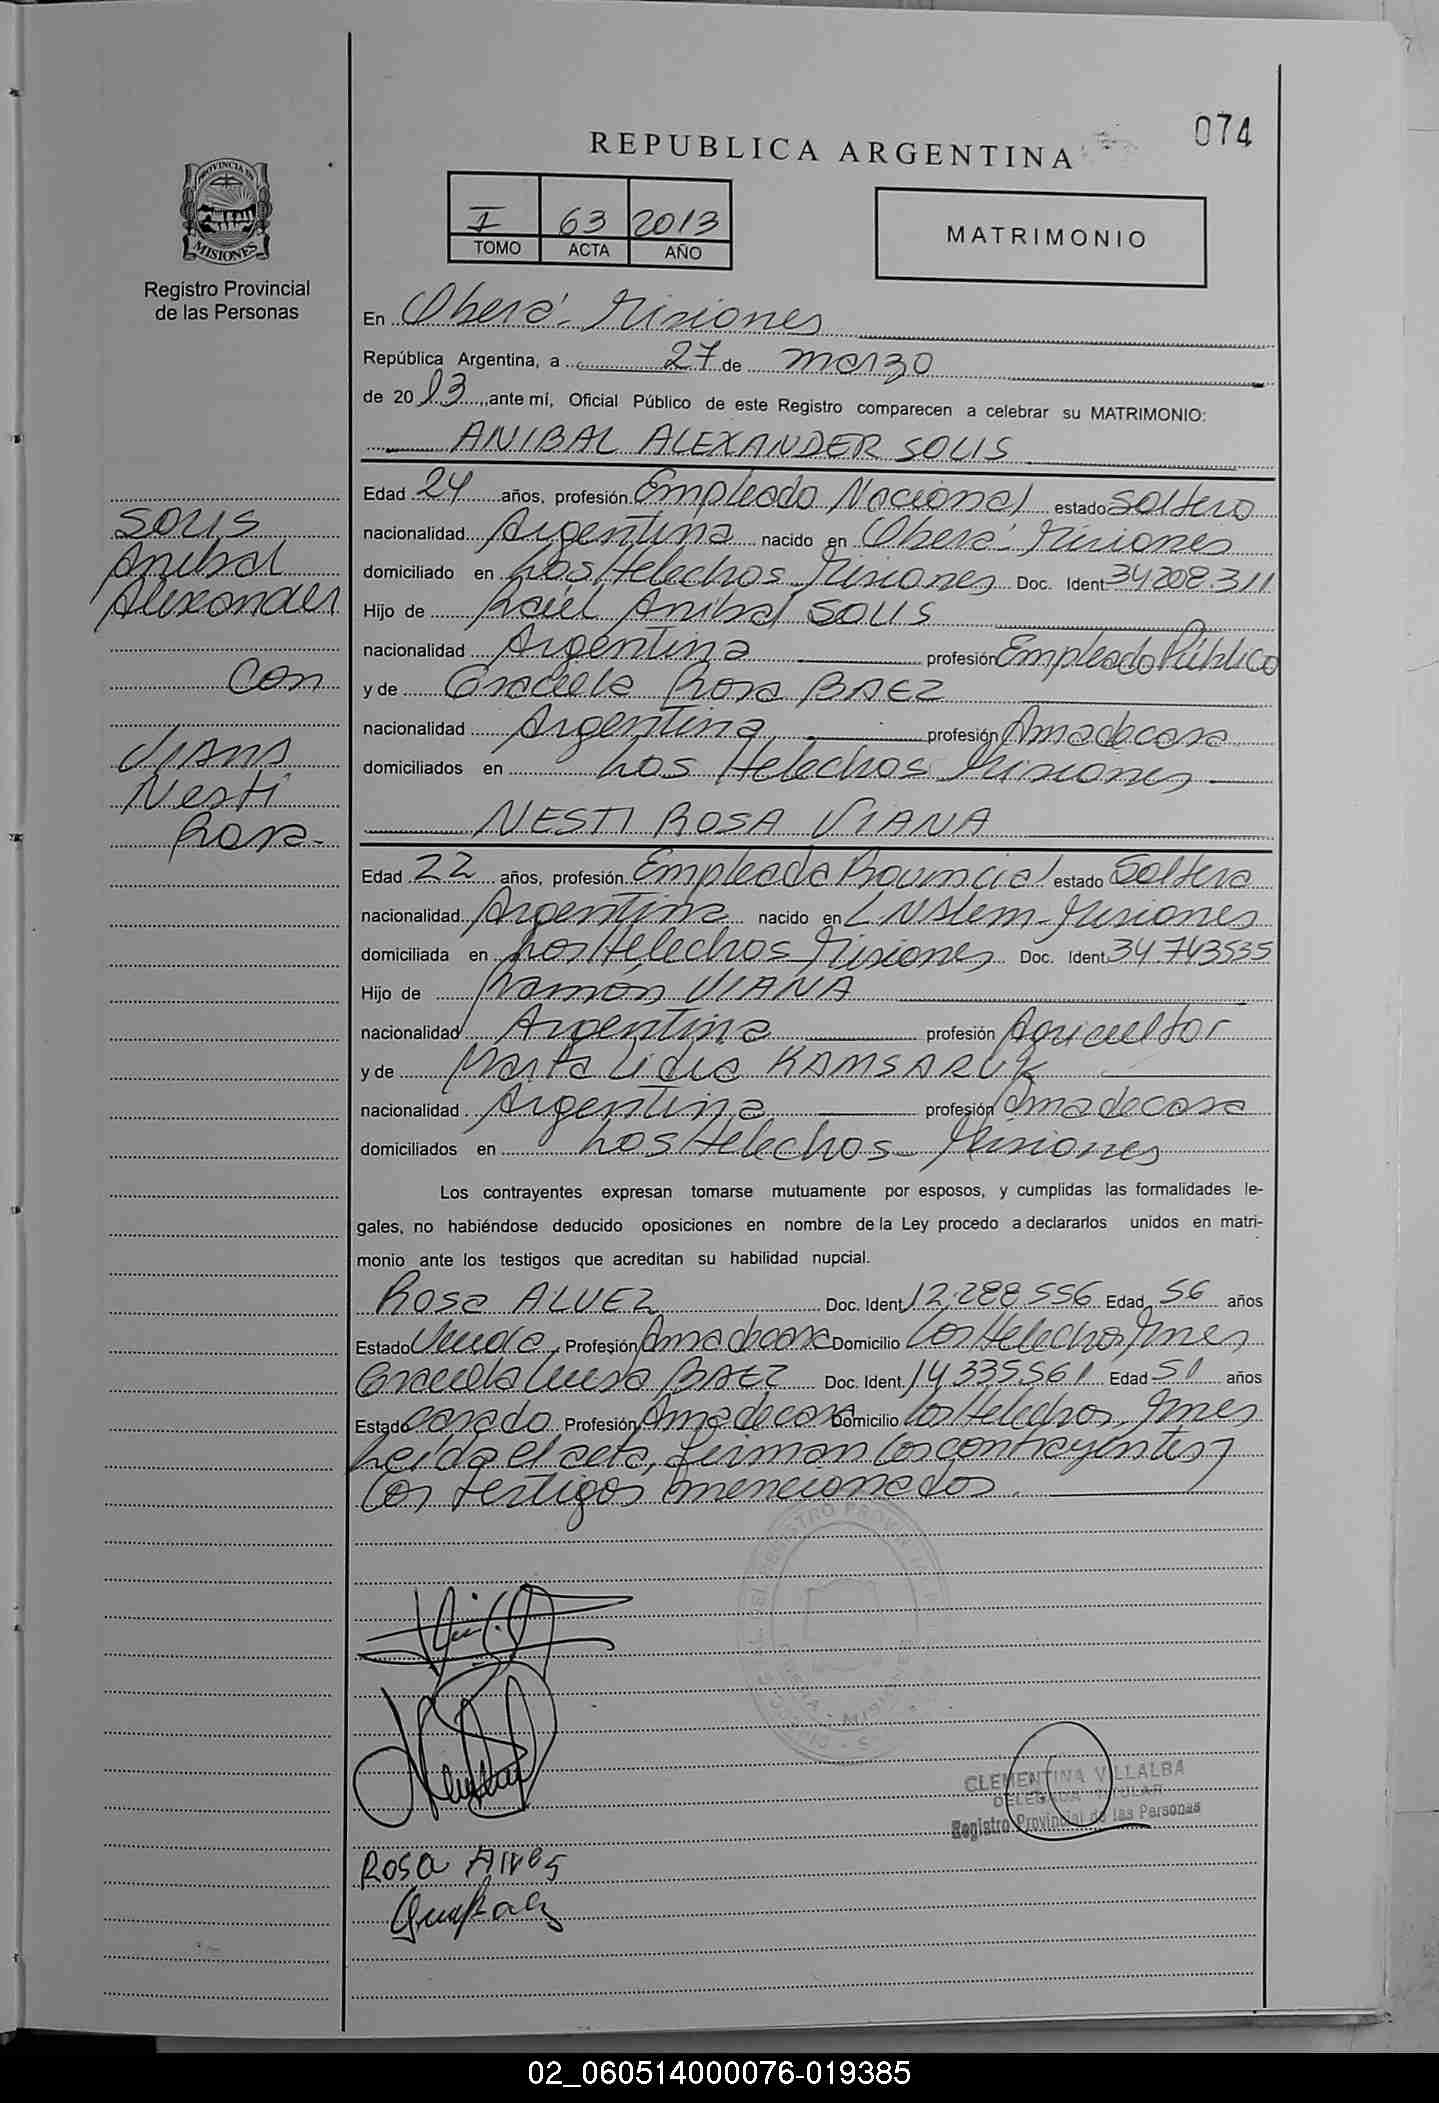 074
REPUBLICA ARGENTINA
PROVINCIA DE
MISIONES
Registro Provincial
de las Personas
I 63 2013
TOMO ACTA AÑO
MATRIMONIO
En Oberá - Misiones
República Argentina, a 27 de marzo
de 2013, ante mí, Oficial Público de este Registro comparecen a celebrar su MATRIMONIO:
ANIBAL ALEXANDER SOLIS
SOLIS
Anibal
Alexander
con
VIANA
Nesti
Rosa.-
Edad 24 años, profesión Empleado Nacional estado soltero
nacionalidad Argentina nacido en Oberá - Misiones
domiciliado en Los Helechos Misiones Doc. Ident. 34.208.311
Hijo de Raúl Anibal SOLIS
nacionalidad Argentina profesión Empleado Público
y de Graciela Rosa BAEZ
nacionalidad Argentina profesión Ama de casa
domiciliados en Los Helechos Misiones
NESTI ROSA VIANA
Edad 22 años, profesión Empleada Provincial estado Soltera
nacionalidad Argentina nacido en L N Alem - Misiones
domiciliada en Los Helechos Misiones Doc. Ident. 34.743535
Hijo de Ramón VIANA
nacionalidad Argentina profesión Agricultor
y de Marta Lidia KAMSARUK
nacionalidad Argentina profesión Ama de casa
domiciliados en Los Helechos - Misiones
Los contrayentes expresan tomarse mutuamente por esposos, y cumplidas las formalidades le-
gales, no habiéndose deducido oposiciones en nombre de la Ley procedo a declararlos unidos en matri-
monio ante los testigos que acreditan su habilidad nupcial.
Rosa ALVEZ Doc. Ident. 12.288.556 Edad 56 años
Estado Viuda Profesión Ama de casa Domicilio Los Helechos, Mnes
Graciela Luisa BAEZ Doc. Ident. 14.335.561 Edad 51 años
Estado casado Profesión Ama de casa Domicilio Los Helechos, Mnes
Leída el acta, firman los contrayentes y
los testigos mencionados.
CLEMENTINA VILLALBA
DELEGADA TITULAR
Registro Provincial de las Personas
Rosa Alves
02_060514000076-019385